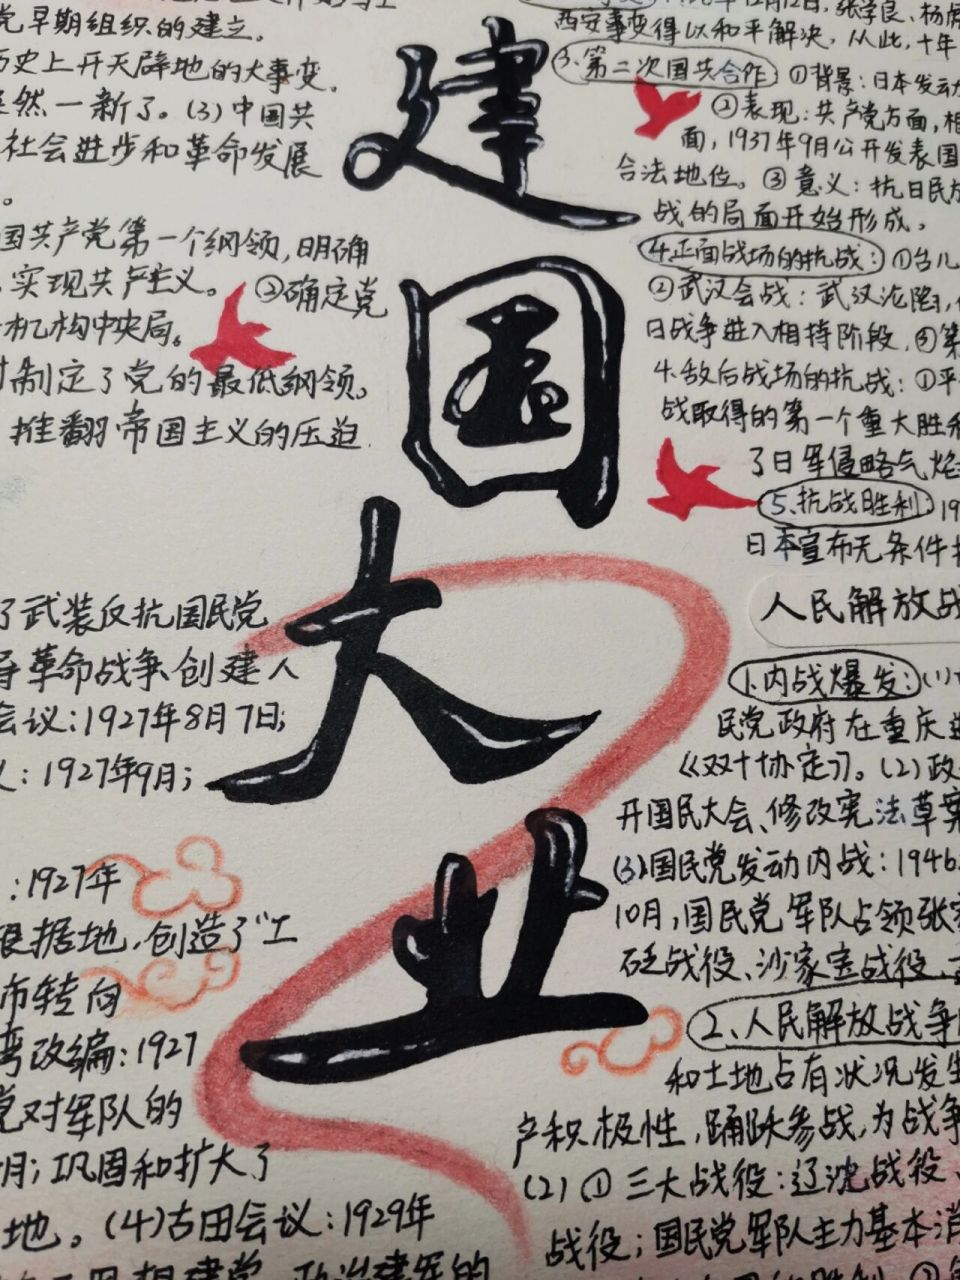 党早期组织的建立。
历史上开天辟地的大事变。
焕然一新了。(3)中国共
社会进步和革命发展
。
国共产党第一个纲领,明确
实现共产主义。 ②确定党
机构中央局。
制定了党的最低纲领。
推翻帝国主义的压迫
了武装反抗国民党
导革命战争、创建人
会议:1927年8月7日;
义:1927年9月;
:1927年
根据地,创造了“工
市转向
湾改编:1927
党对军队的
月;巩固和扩大了
地。(4)古田会议:1929年
思想建党、政治建军的
建
国
大
业
年12月12日,张学良、杨虎
西安事变得以和平解决,从此,十年
3.第二次国共合作 ①背景:日本发动
②表现:共产党方面,相
面,1937年9月公开发表国
合法地位。③意义:抗日民族
战的局面开始形成。
4.正面战场的抗战:①台儿
②武汉会战:武汉沦陷,
日战争进入相持阶段,③第
4.敌后战场的抗战:①平
战取得的第一个重大胜利
了日军侵略气焰
5.抗战胜利:19
日本宣布无条件投
人民解放战
1.内战爆发:(1)
民党政府在重庆进
《双十协定》。(2)政
开国民大会、修改宪法草案
(3)国民党发动内战:1946
10月,国民党军队占领张家
砭战役、沙家宝战役、
2.人民解放战争
和土地占有状况发生
产积极性,踊跃参战,为战争
(2)①三大战役:辽沈战役、
战役;国民党军队主力基本消